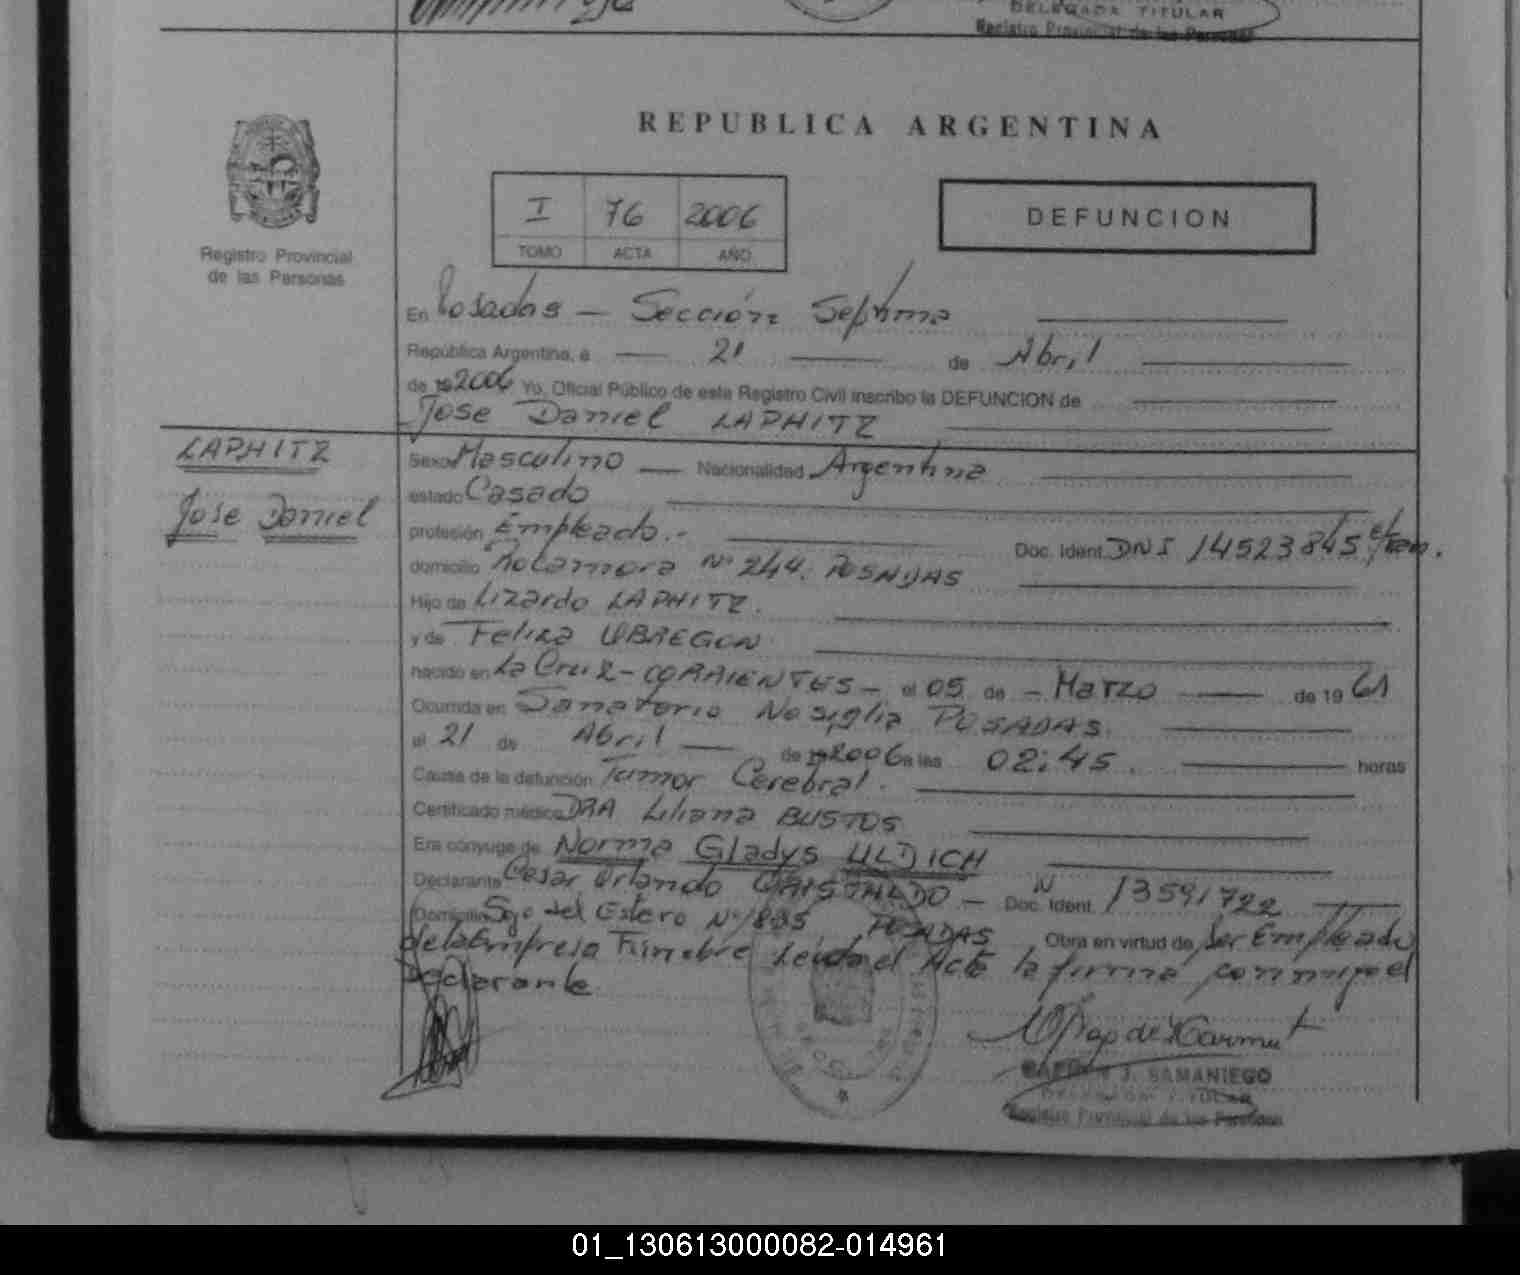 DELEGADA TITULAR
Registro Provincial de las Personas
REPUBLICA ARGENTINA
I 76 2006
TOMO ACTA AÑO
DEFUNCION
Registro Provincial
de las Personas
En Posadas - Sección Septima
República Argentina, a 21 de Abril
de 2006 Yo, Oficial Público de este Registro Civil inscribo la DEFUNCION de
Jose Daniel LAPHITZ
LAPHITZ
Jose Daniel
Sexo Masculino Nacionalidad Argentina
estado Casado
profesión Empleado.- Doc. Ident. DNI 14523845
domicilio Rocamora Nº 244. POSADAS
Hijo de Lizardo LAPHITZ.
y de Feliza OBREGON
nacido en La Cruz - CORRIENTES - el 05 de - Marzo de 19 61
Ocurrida en Sanatorio Nosiglia POSADAS.
el 21 de Abril de 2006 a las 02:45 horas
Causa de la defunción Tumor Cerebral.
Certificado médico DRA Liliana BUSTOS
Era cónyuge de Norma Gladys ULDICH
Declarante Cesar Orlando GRISTALDO - Doc. Ident. N 13591722
Domicilio Sgo del Estero Nº 1885 POSADAS Obra en virtud de Ser Empleado
de la Empresa Funebre Leida el Acta la firma conmigo el
Declarante
J. SAMANIEGO
DELEGADA TITULAR
Registro Provincial de las Personas
01_130613000082-014961